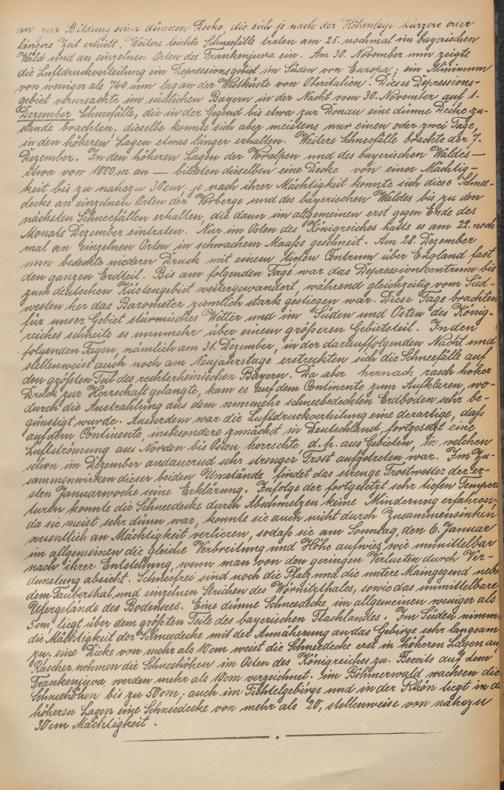 an zur Bildung einer dünnen Decke, die sich je nach der Höhenlage kürzere oder
längere Zeit erhielt. Weitere leichte Schneefälle traten am 25. nochmal im bayerischen
Wald und an einzelnen Orten des Frankenjura ein. Am 30. November nun zeigte
die Luftdruckverteilung ein Depressionsgebiet im Süden von Europa; ein Minimum
von weniger als 740 mm lag an der Westküste von Oberitalien. Dieses Depressions-
gebiet verursachte im südlichen Bayern in der Nacht vom 30. November auf 1.
Dezember Schneefälle, die in der Gegend bis etwa zur Donau eine dünne Decke zu-
stande brachten, dieselbe konnte sich aber meistens nur einen oder zwei Tage,
in den höheren Lagen etwas länger erhalten. Weitere Schneefälle brachte der 7.
Dezember. In den höheren Lagen der Voralpen und des bayerischen Waldes —
etwa von 1000 m an — bildeten dieselben eine Decke von einer Mächtig-
keit bis zu nahezu 30 cm. Je nach ihrer Mächtigkeit konnte sich diese Schnee-
decke an einzelnen Orten der Vorberge und des bayerischen Waldes bis zu den
nächsten Schneefällen erhalten, die dann im allgemeinen erst gegen Ende des
Monats Dezember eintraten. Nur im Osten des Königreiches hatte es am 22. noch
mal an einzelnen Orten in schwachem Maaße geschneit. Am 28. Dezember
nun bedeckte niederer Druck mit einem tiefen Centrum über England fast
den ganzen Erdteil. Bis am folgenden Tage war das Depressionscentrum bis
zum deutschen Küstengebiet weitergewandert, während gleichzeitig vom Süd-
westen her das Barometer ziemlich stark gestiegen war. Diese Tage brachten
für unser Gebiet stürmisches Wetter und im Süden und Osten des König-
reiches schneite es nunmehr über einem größeren Gebietsteil. In den
folgenden Tagen, nämlich am 31. Dezember, in der darauffolgenden Nacht und
stellenweise auch noch am Neujahrstage erstreckten sich die Schneefälle auf
den größten Teil des rechtsrheinischen Bayern. Da aber hernach rasch hoher
Druck zur Herrschaft gelangte, kam es auf dem Continente zum Aufklaren, wo-
durch die Ausstrahlung aus dem nunmehr schneebedeckten Erdboden sehr be-
günstigt wurde. Ausserdem war die Luftdruckverteilung eine derartige, daß
auf dem Continente, insbesondere zunächst in Deutschland fortgesetzt eine
Luftströmung aus Norden bis Osten herrschte, d. h. aus Gebieten, in welchen
schon im Dezember andauernd sehr strenger Frost aufgetreten war. Im Zu-
sammenwirken dieser beiden Umstände findet das strenge Frostwetter der er-
sten Januarwoche seine Erklärung. Infolge der fortgesetzt sehr tiefen Tempera
turen konnte die Schneedecke durch Abschmelzen keine Minderung erfahren;
da sie meist sehr dünn war, konnte sie auch nicht durch Zusammensinken
wesentlich an Mächtigkeit verlieren, sodaß sie am Sonntag, den 6. Januar
im allgemeinen die gleiche Verbreitung und Höhe aufwies wie unmittelbar
nach ihrer Entstehung, wenn man von den geringen Verlusten durch Ver-
dunstung absieht. Schneefrei sind noch die Pfalz und die untere Maingegend nebst
dem Tauberthal und einzelnen Strichen des Wörnitzthales, sowie das unmittelbare
Ufergelände des Bodensees. Eine dünne Schneedecke im allgemeinen weniger als
5 cm, liegt über dem größten Teile des bayerischen Flachlandes. Im Süden nimmt
die Mächtigkeit der Schneedecke mit der Annäherung an das Gebirge sehr langsam
zu; eine Dicke von mehr als 10 cm weist die Schneedecke erst in höheren Lagen auf.
Rascher nehmen die Schneehöhen im Osten des Königreiches zu. Bereits auf dem
Frankenjura werden mehr als 10 cm verzeichnet. Im Böhmerwald wachsen die
Schneehöhen bis zu 50 cm, auch im Fichtelgebirge und in der Rhön liegt in de
höheren Lagen eine Schneedecke von mehr als 20, stellenweise von nahezu
30 cm Mächtigkeit.